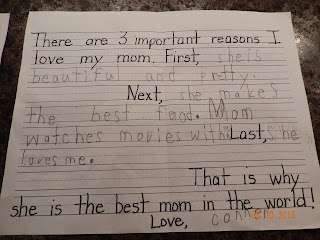 There are 3 important reasons I
love my mom. First, she is
beautiful and pretty.
Next, she makes
the best food. Mom
watches movies with Last, she
loves me.
That is why
she is the best mom in the world!
Love, conner